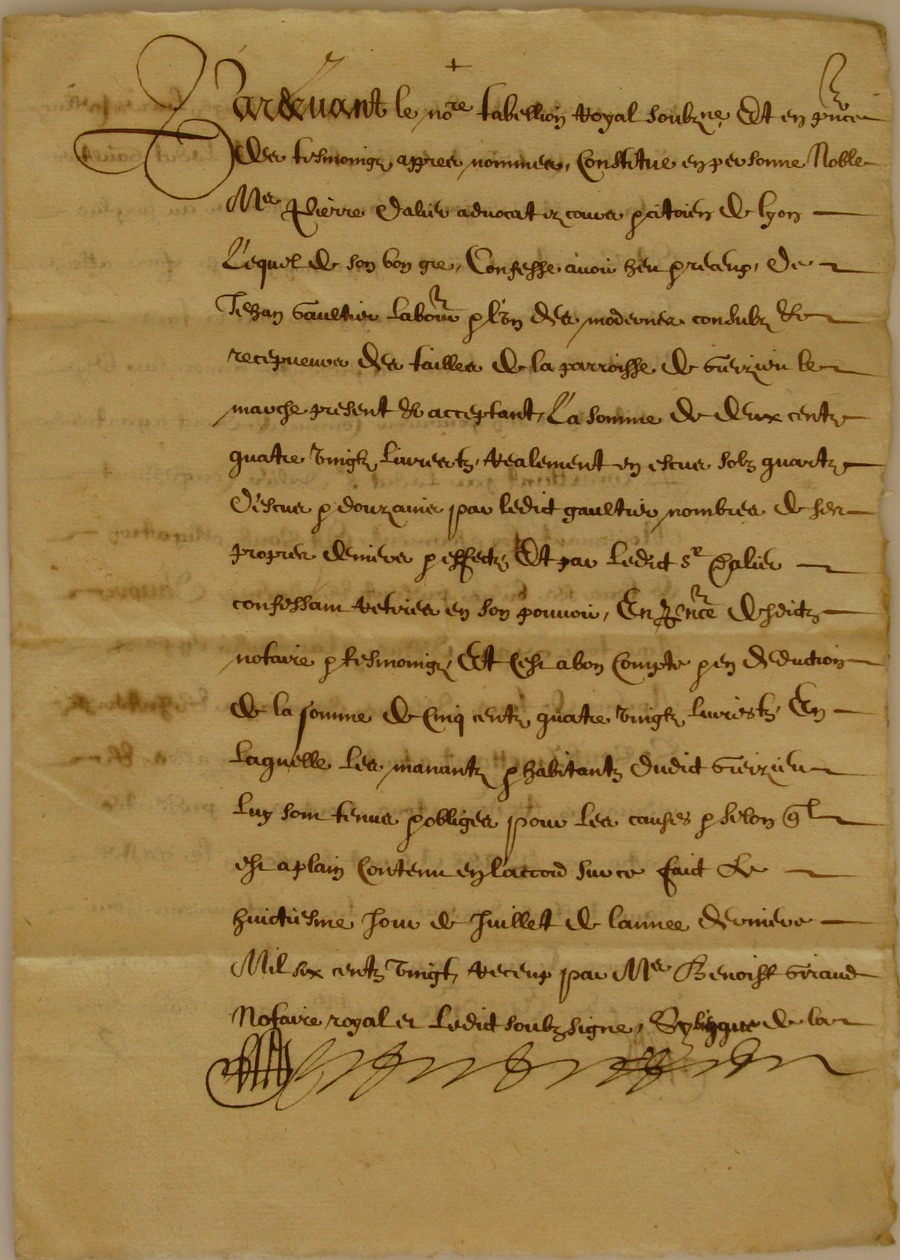 +
Pardevant le no.re tabellion Royal soubz.ne Et en p.nce
des tesmoingz appres nommes, Constitue en personne Noble
M.re Pierre Dalier advocat ez cours & citoien de lyon
Lequel de son bon gre, Confesse avoir heu & receup, De
Jehan Gaultier labour & l'un des modernes consulz &
recepveurs des tailles de la parroisse de Virzieu le
marche present & acceptant, La somme de deux centz
quatre vingtz livres tz, realement en escus solz quartz
D'escus & douzains par ledict gaultier nombres de ses
propres deniers & effectz, Et par Ledict s.r Dalier
confessant retires en son pouvoir, En p.nce desdictz
notaire & tesmoingz, Et c'est a bon Compte & en deduction
de la somme de Cinq centz quatre vingtz livres tz, En
laquelle les manantz & habitantz dudict Virzieu
luy sont tenus & obliges pour les causes & selon q.l
est a plain Contenu en l'accord sur ce faict Le
huictiesme Jour de Juillet de l'annee derniere
Mil six centz vingt, receup par M.re Benoist Giraud
Notaire royal et ledict soubzsigne, de la